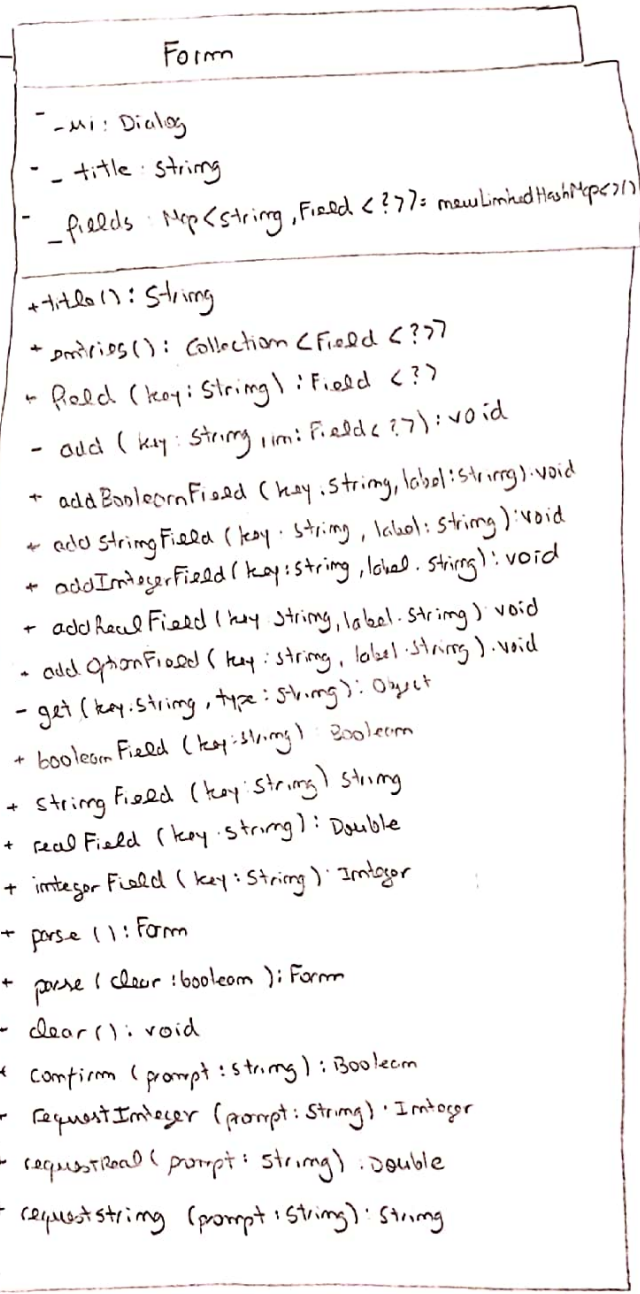 Form
- _ui: Dialog
- _title: String
- _fields: Map<String, Field<?>> = newLinkedHashMap<>()
+ title(): String
+ entries(): Collection<Field<?>>
+ field (key: String): Field <?>
- add (key: String, in: Field<?>): void
+ addBooleanField (key: String, label: String): void
+ addStringField (key: String, label: String): void
+ addIntegerField (key: String, label: String): void
+ addRealField (key: String, label: String): void
+ addOptionField (key: String, label: String): void
- get (key: String, type: String): Object
+ booleanField (key: String): Boolean
+ StringField (key: String): String
+ realField (key: String): Double
+ integerField (key: String): Integer
+ parse (): Form
+ parse (clear: boolean): Form
- clear(): void
+ confirm (prompt: String): Boolean
+ requestInteger (prompt: String): Integer
+ requestReal (prompt: String): Double
+ requestString (prompt: String): String